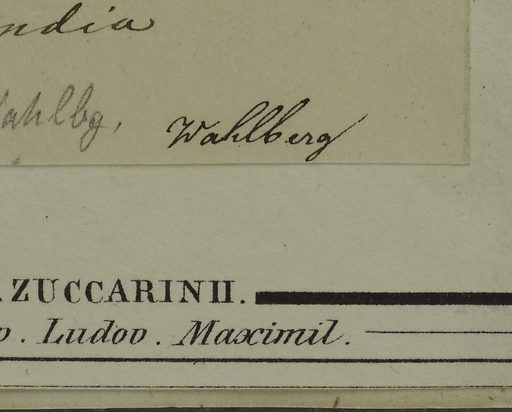 ndia
ahlbg,
Wahlberg
. ZUCCARINII.
. Ludov. Maximil.